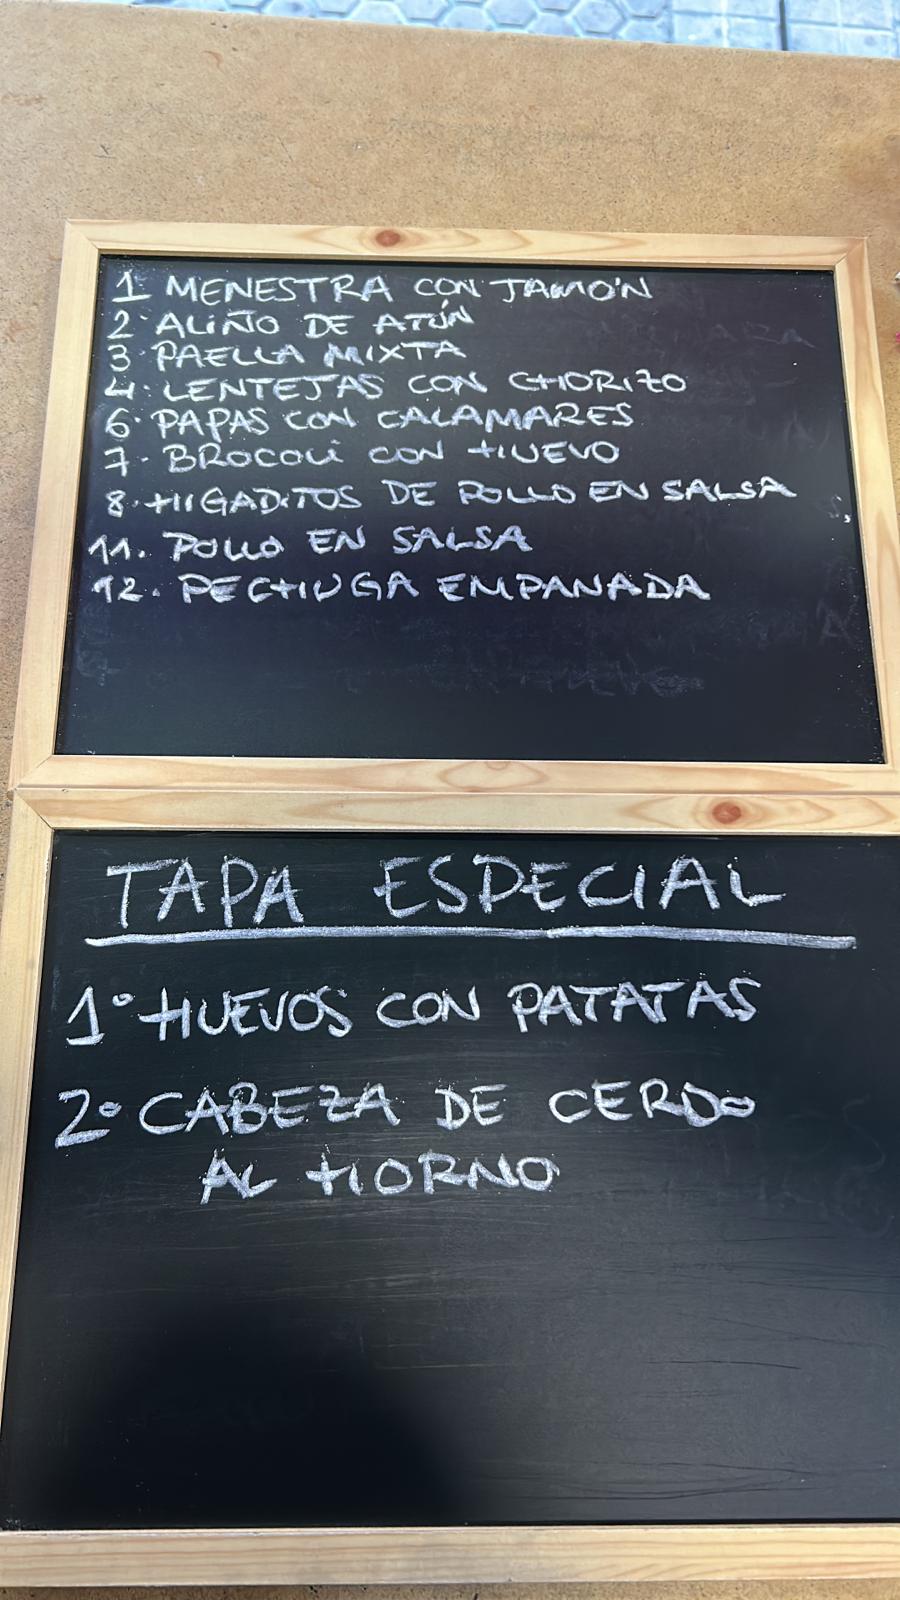 1 MENESTRA CON JAMÓN
2. ALIÑO DE ATÚN
3. PAELLA MIXTA
4. LENTEJAS CON CHORIZO
6. PAPAS CON CALAMARES
7. BROCOLI CON HUEVO
8. HIGADITOS DE POLLO EN SALSA
11. POLLO EN SALSA
12. PECHUGA EMPANADA
TAPA ESPECIAL
1º HUEVOS CON PATATAS
2º CABEZA DE CERDO
AL HORNO